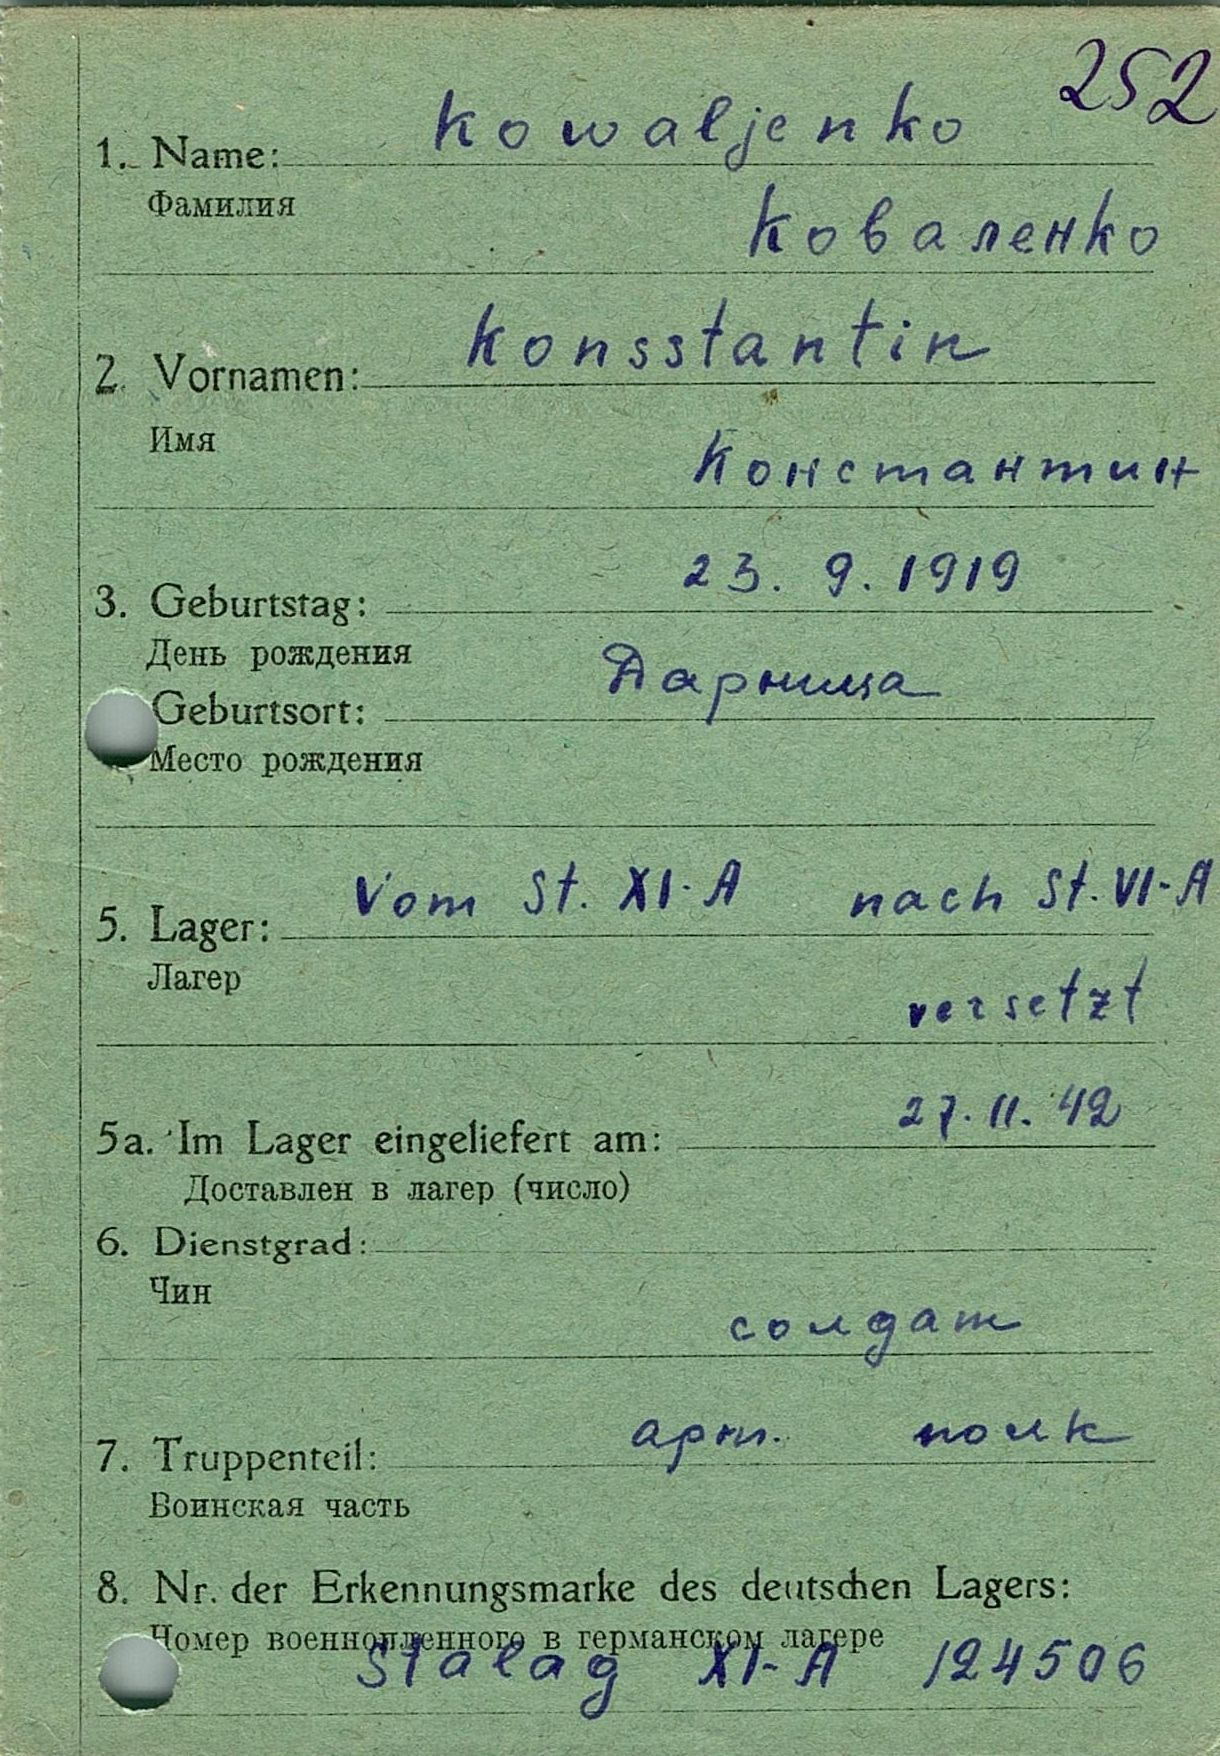 252
1. Name: Kowaljenko
Фамилия
Коваленко
2. Vornamen: Konsstantin
Имя
Константин
3. Geburtstag: 23. 9. 1919
День рождения
Geburtsort: Дарница
Место рождения
5. Lager: Vom St. XI-A nach St. VI-A
Лагер
versetzt
5a. Im Lager eingeliefert am: 27. 11. 42
Доставлен в лагер (число)
6. Dienstgrad:
Чин
солдат
7. Truppenteil: арт. полк
Воинская часть
8. Nr. der Erkennungsmarke des deutschen Lagers:
Номер военнопленного в германском лагере
Stalag XI-A 124506